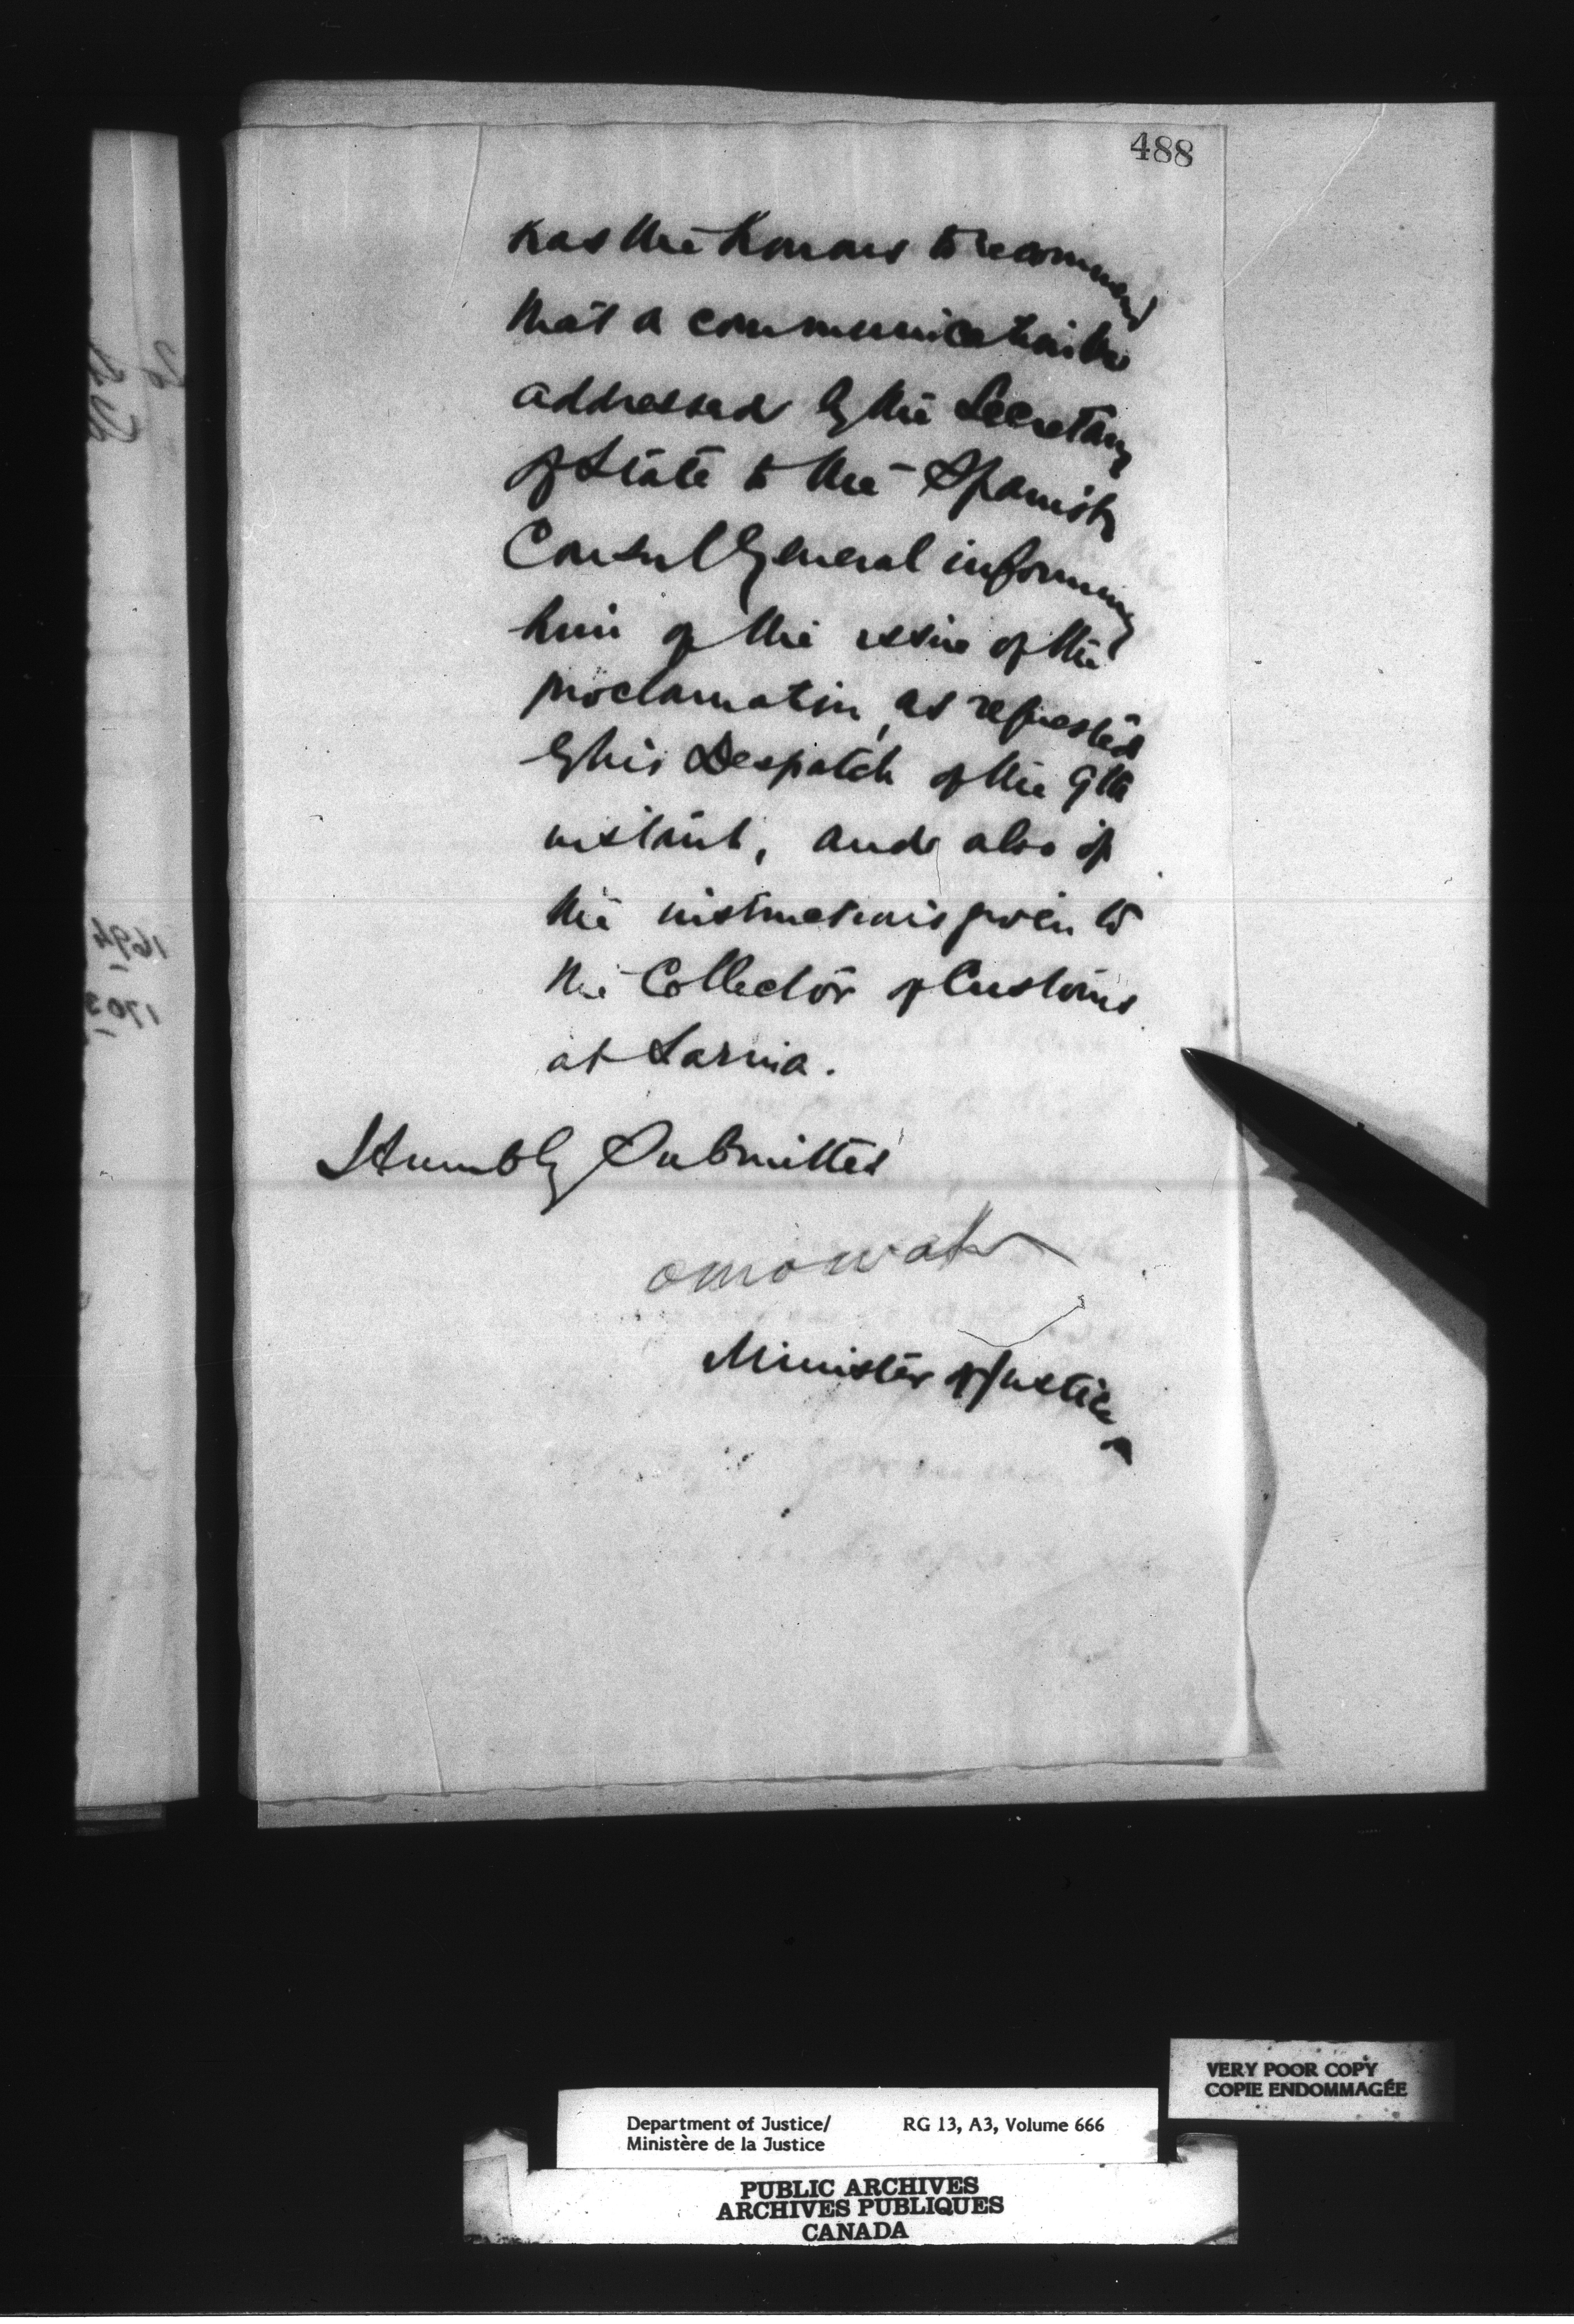 488
has the honour to recommend
that a communication be
addressed by the Secretary
of State to the Spanish
Consul General informing
him of the issue of the
proclamation, as requested
by his Despatch of the 9th
instant, and also of
the instructions given to
the Collector of Customs
at Sarnia.
Humbly Submitted
O Mowat
Minister of Justice
1694
1703
VERY POOR COPY
COPIE ENDOMMAGÉE
Department of Justice/ RG 13, A3, Volume 666
Ministère de la Justice
PUBLIC ARCHIVES
ARCHIVES PUBLIQUES
CANADA